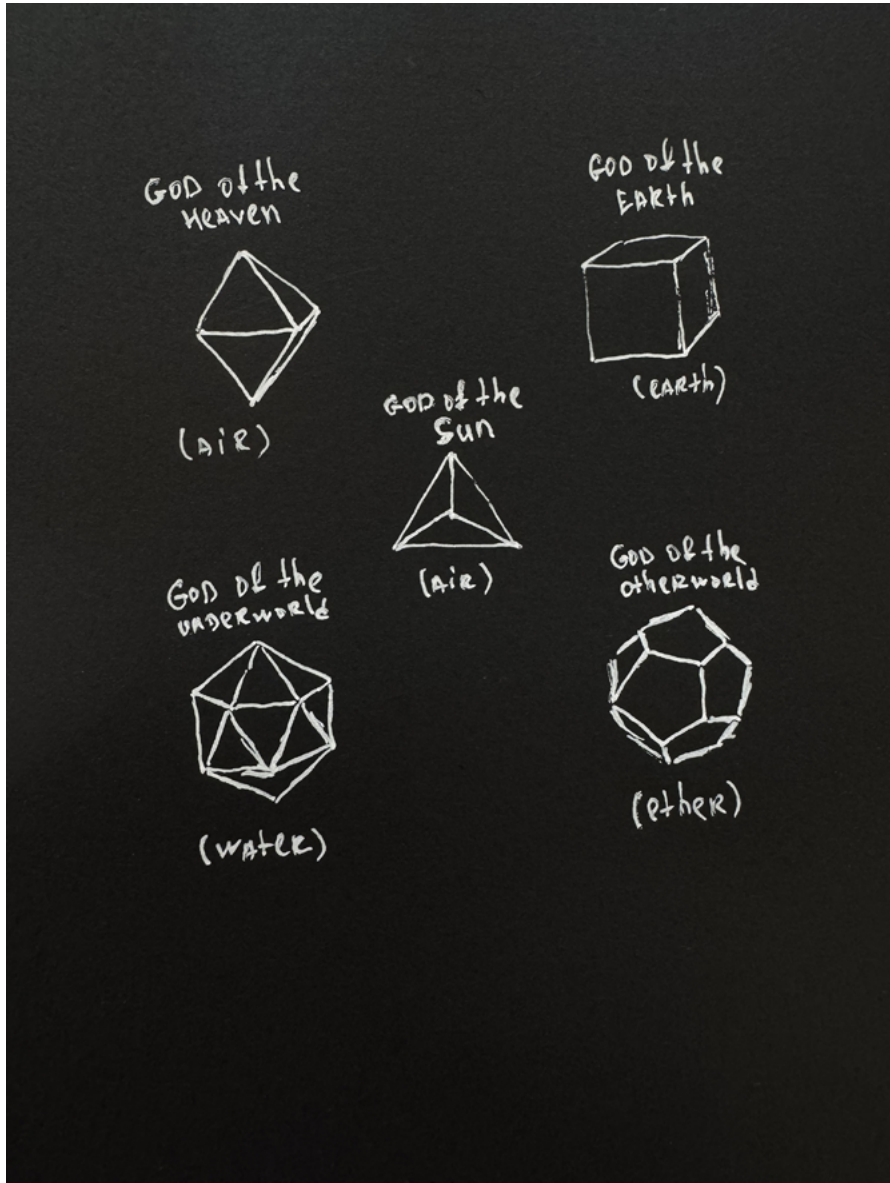 GOD of the
HeAven
GOD Of the
EARth
(AiR)
(eARth)
GOD of the
Sun
(AiR)
GOD of the
unDeRwoRld
GOD Of the
otheRwoRld
(wAteR)
(etheR)